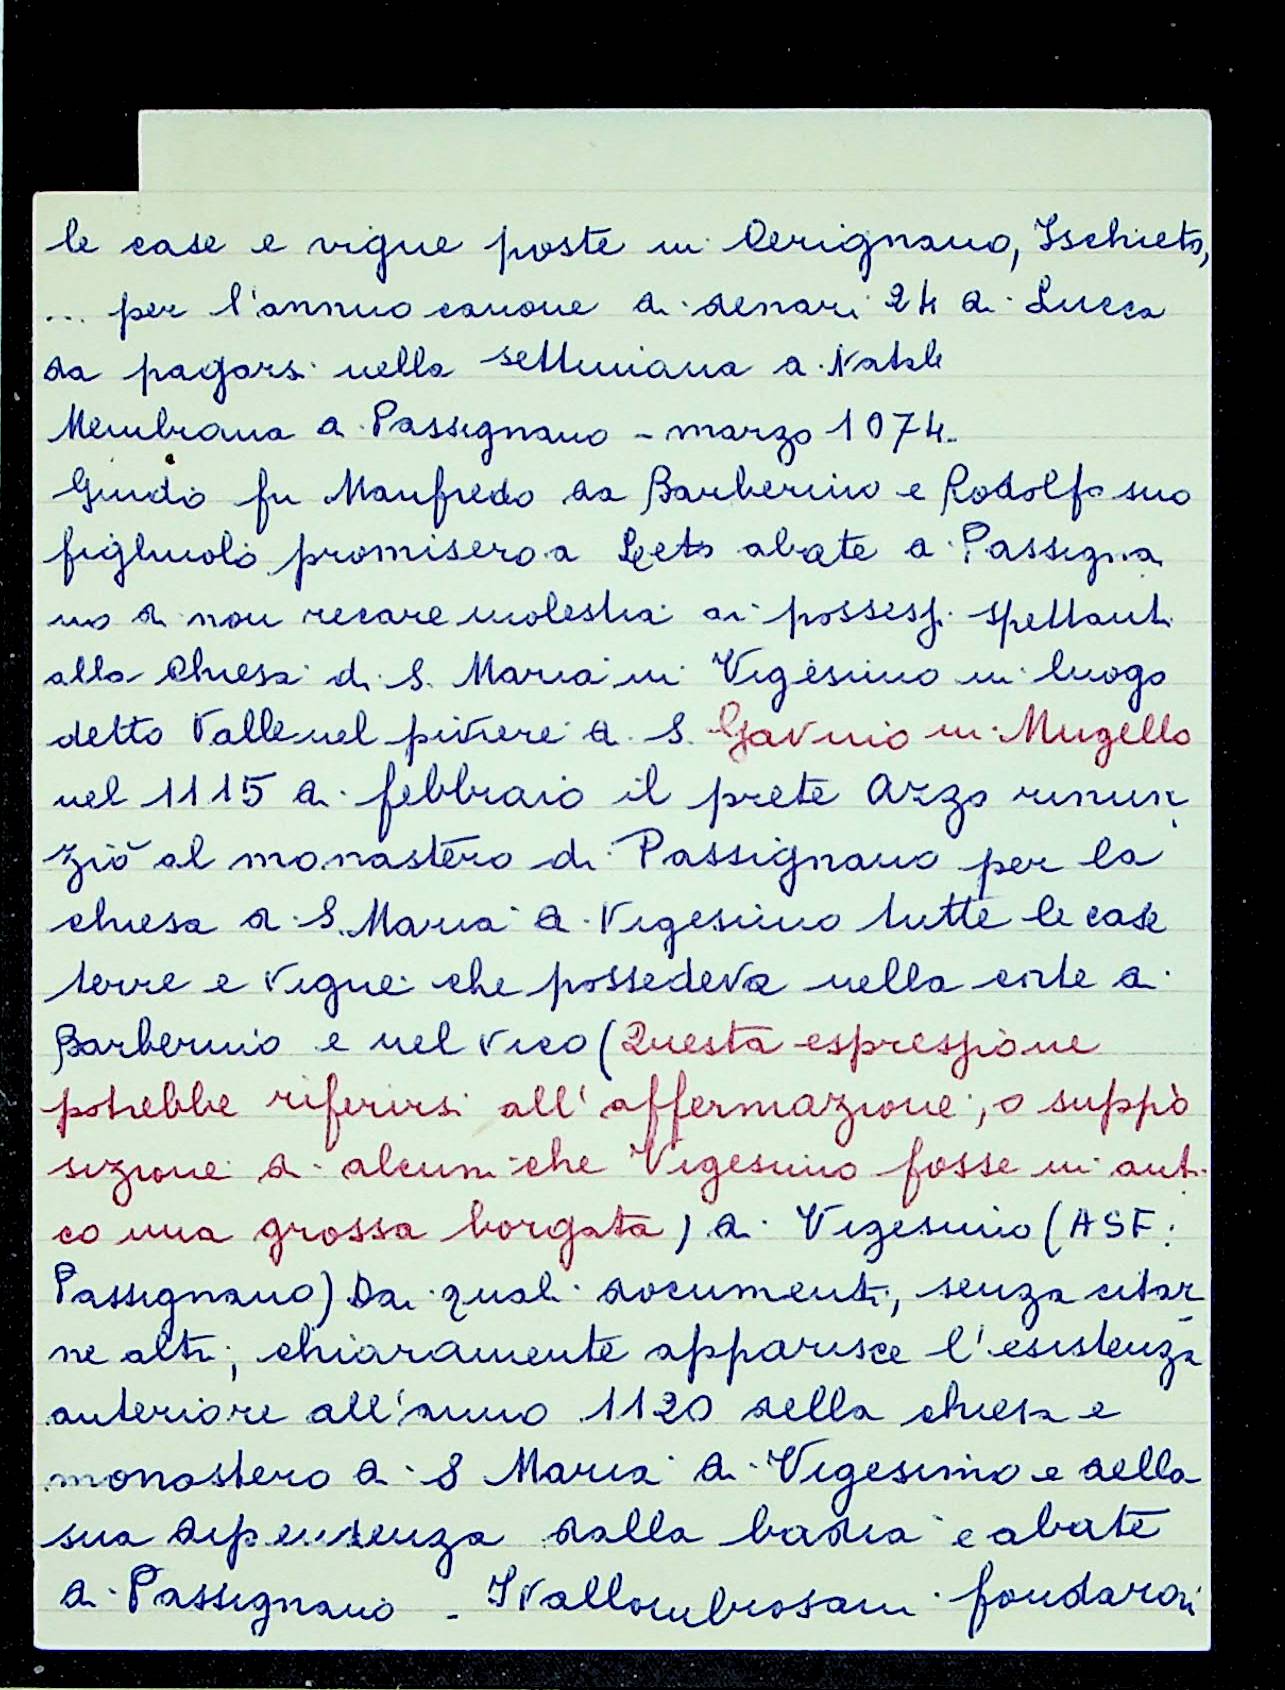 le case e vigne poste in Cerignano, Ischieto,
... per l'annuo canone di denari 24 di Lucca
da pagarsi nella settimana di Natale
Membrana di Passignano - marzo 1074.
Guido fu Manfredo da Barberino e Rodolfo suo
figliuolo promisero a Leto abate di Passigna
no di non recare molestia ai possessi spettanti
alla Chiesa di S. Maria in Vigesimo in luogo
detto Valle nel piviere di S. Gavino in Mugello
nel 1115 di febbraio il prete Azzo rinun
ziò al monastero di Passignano per la
chiesa di S. Maria di Vigesimo tutte le case
terre e vigne che possedeva nella corte di
Barberino e nel vico (Questa espressione
potrebbe riferirsi all'affermazione, o suppo
sizione di alcuni che Vigesimo fosse in anti
co una grossa borgata) di Vigesimo (ASF:
Passignano) Dai quali documenti, senza citar
ne altri, chiaramente apparisce l'esistenza
anteriore all'anno 1120 della chiesa e
monastero di S Maria di Vigesimo e della
sua dipendenza dalla badia e abate
di Passignano - I Vallombrosani fondaron